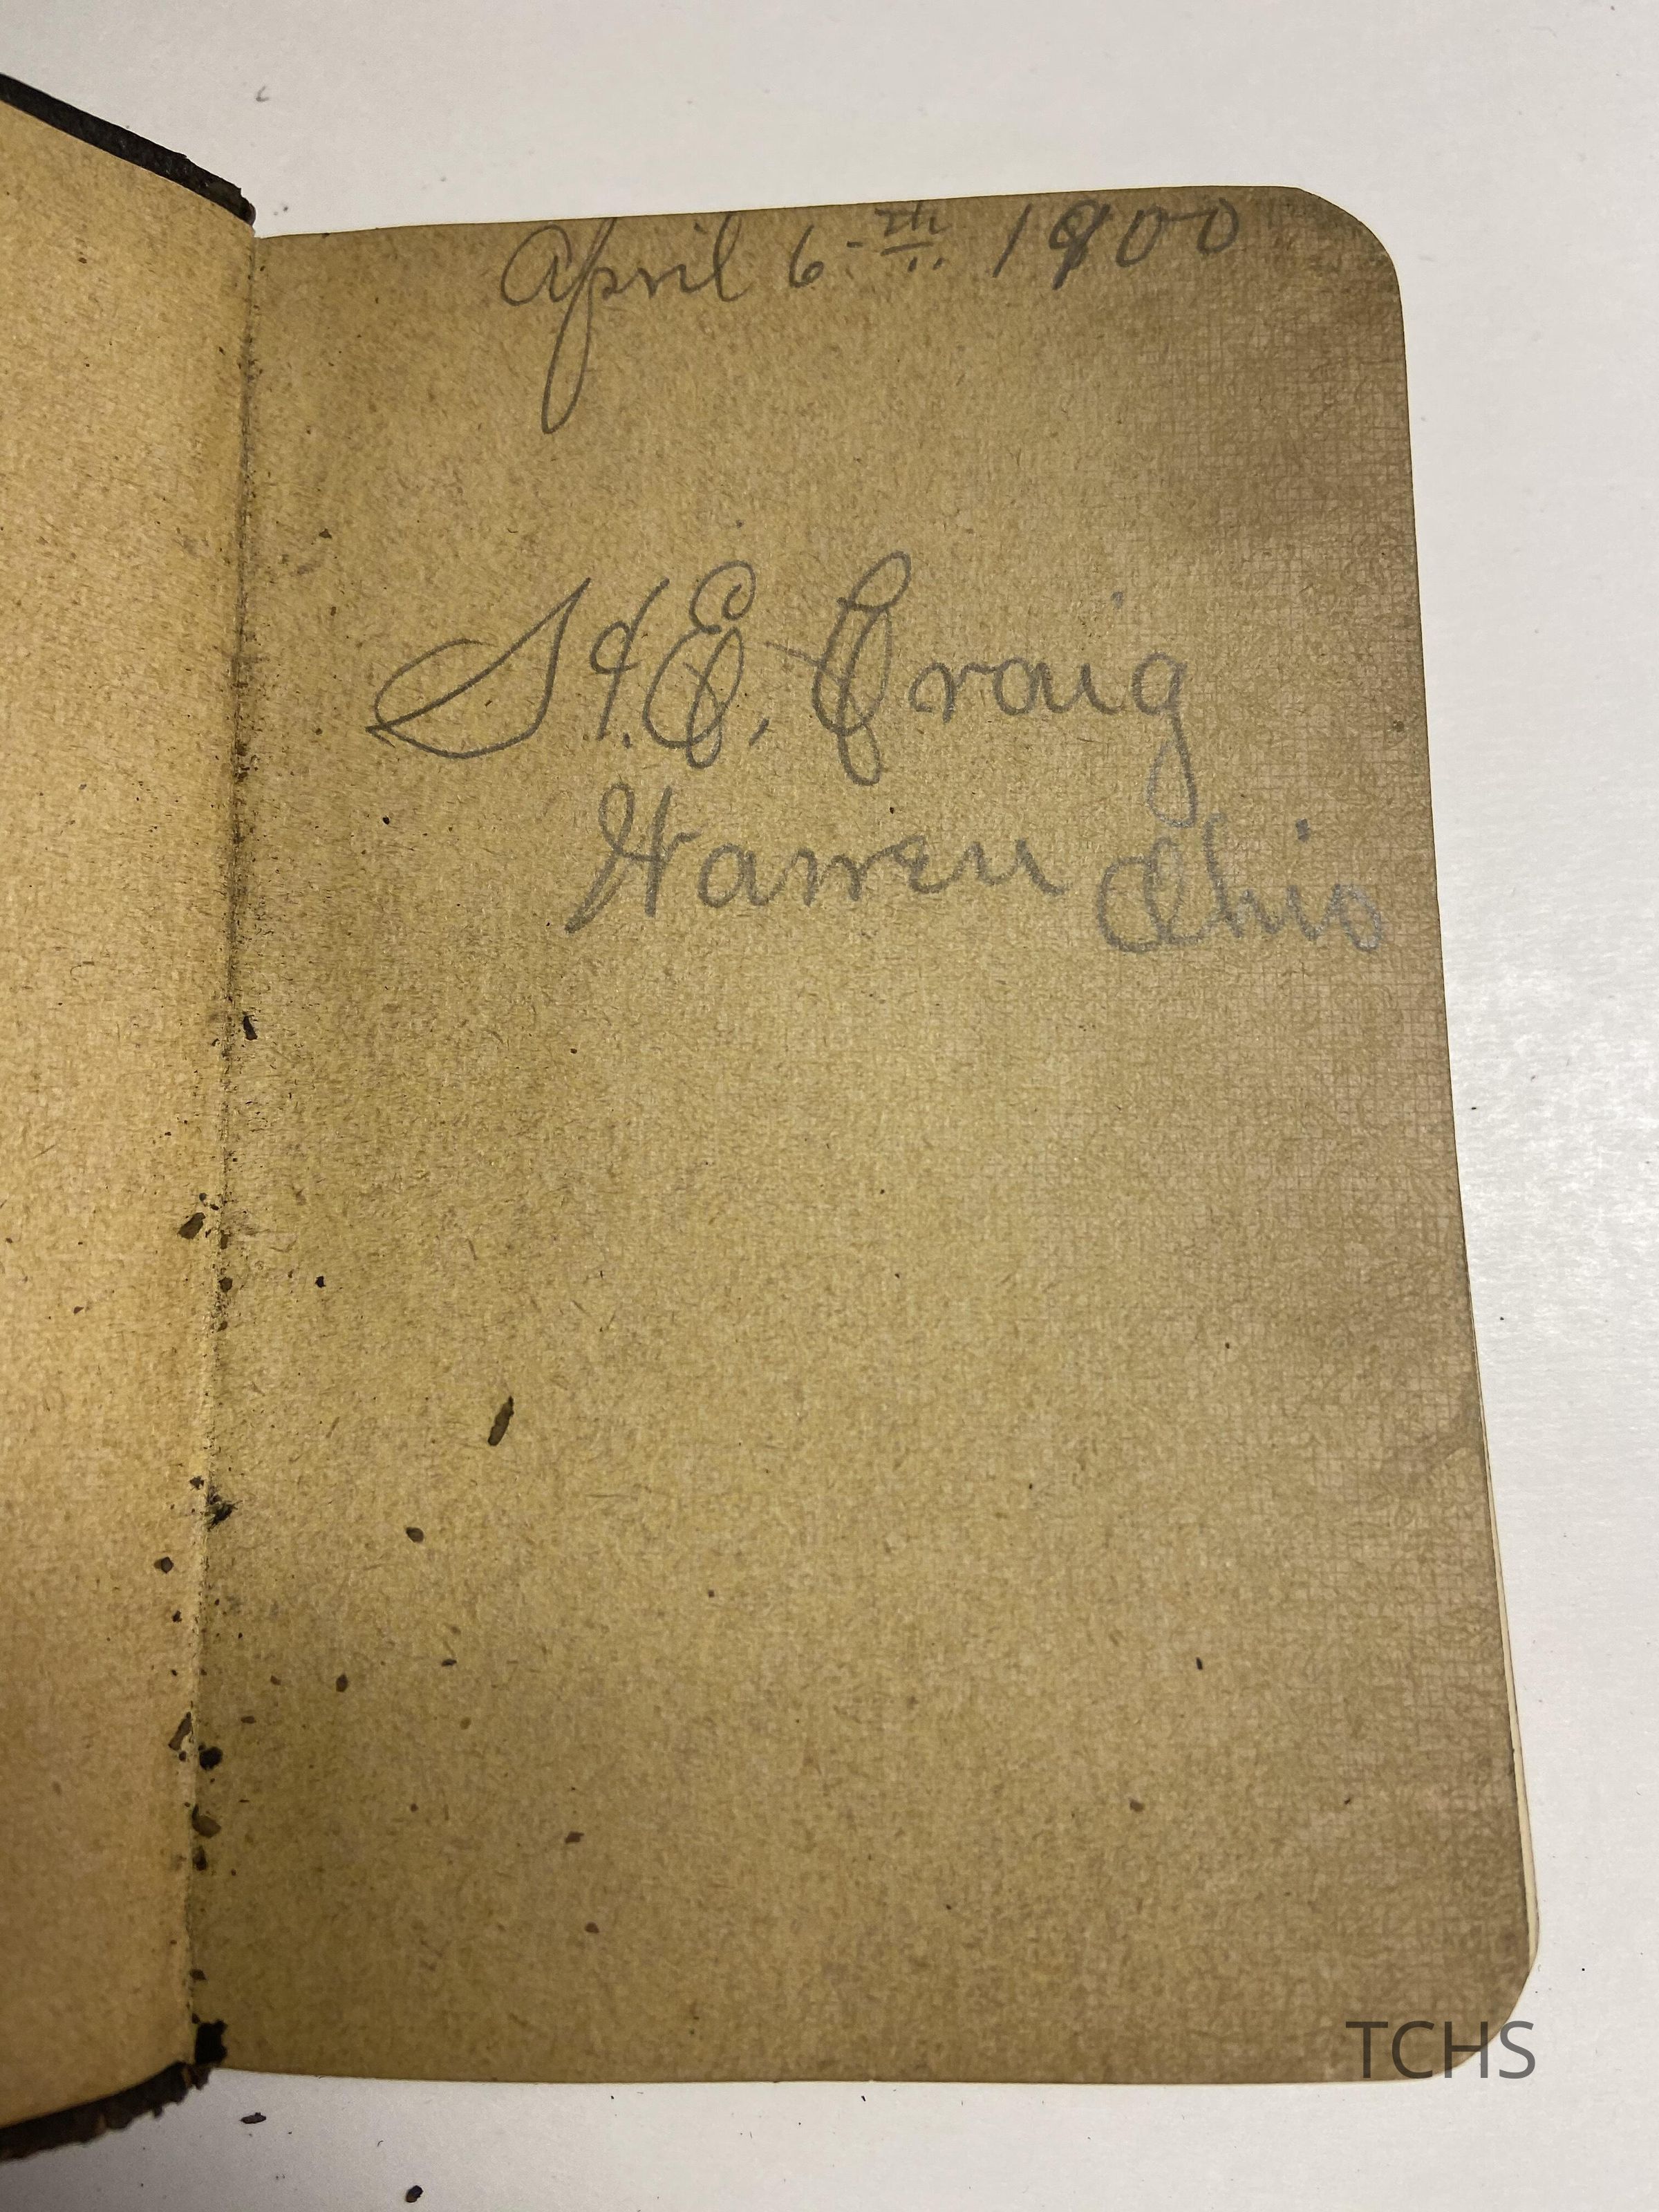 April 6-th 1900
E. Craig
Warren Ohio
TCHS